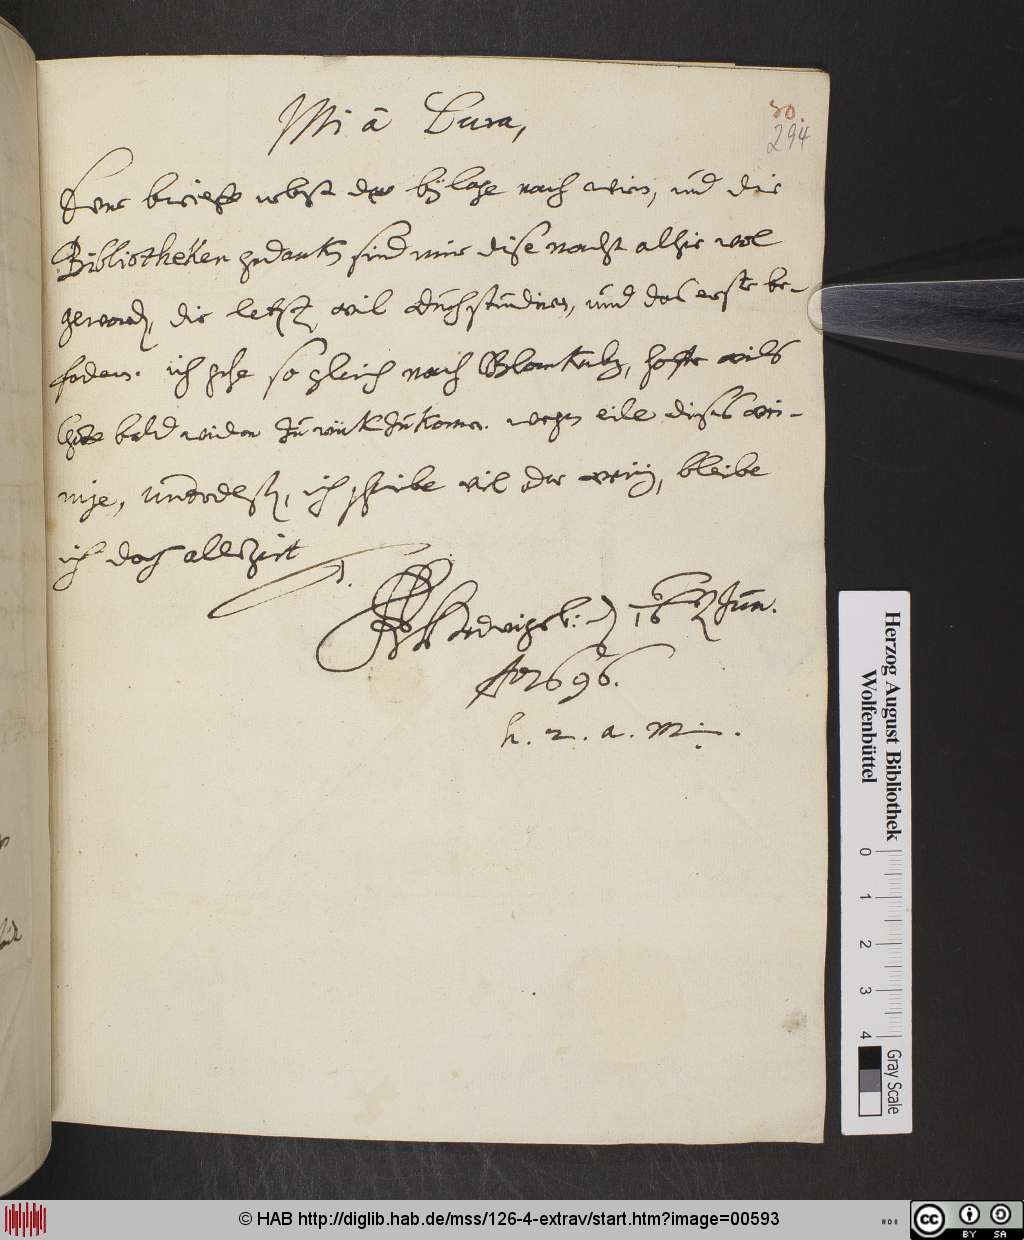 Mi ā Cura,
30.
294
brieff nebst der bÿlage nach wien, und die
Bibliotheken gedanken sind mir dise nacht alhie wol
geworden, die letzte wil durchstudiren, und das erste be-
fodern. ich gehe so gleich nach Blankenb, hoffe wils
Gott bald wider zurück zukomen. wegen eile dises wei-
nige, ich schreibe vil oder weinig, bleibe
ich doch allezeit
Hedwigsb: 16 Jun.
Ao 1696.
h. z. a. m.
Herzog August Bibliothek
Wolfenbüttel
0 1 2 3 4
Gray Scale
© HAB http://diglib.hab.de/mss/126-4-extrav/start.htm?image=00593
cc BY SA